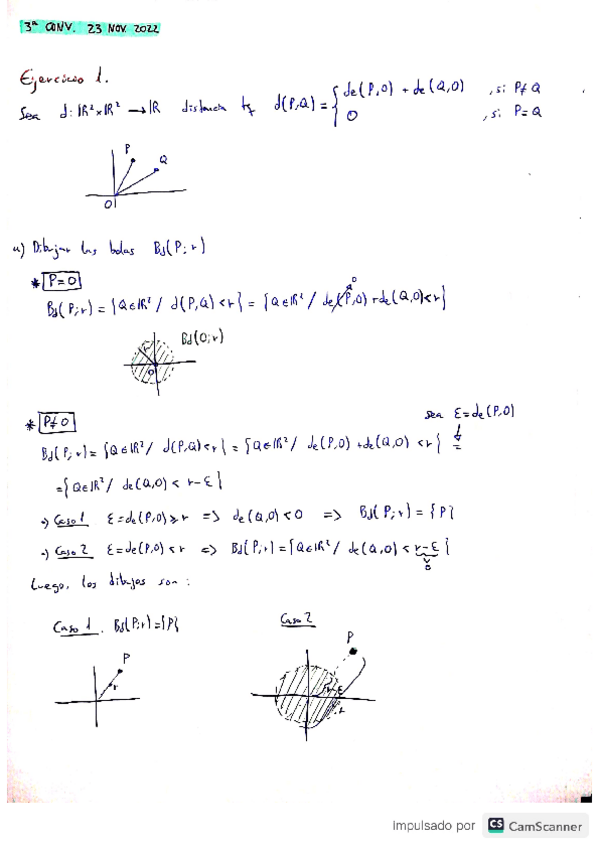 3ª CONV. 23 NOV 2022
Ejercicio 1.
Sea d: ℝ²×ℝ² → ℝ distancia tq d(P,Q) = { de(P,O) + de(Q,O) , si P≠Q
0 , si P=Q
P
Q
O
a) Dibujar las bolas Bd(P;r)
* P=O
Bd(P;r) = {Q∈ℝ² / d(P,Q)<r} = {Q∈ℝ² / de(P,O) + de(Q,O)<r}
Bd(O;r)
r
O
* P≠O
sea ε=de(P,O)
Bd(P;r) = {Q∈ℝ² / d(P,Q)<r} = {Q∈ℝ² / de(P,O) + de(Q,O) < r} =
= {Q∈ℝ² / de(Q,O) < r-ε}
·) Caso 1 ε=de(P,O)≥r => de(Q,O)<0 => Bd(P;r) = {P}
·) Caso 2 ε=de(P,O)<r => Bd(P;r) = {Q∈ℝ² / de(Q,O) < r-ε}
0
Luego, los dibujos son:
Caso 1. Bd(P;r)={P}
Caso 2
P
r
P
r-ε
Impulsado por CS CamScanner